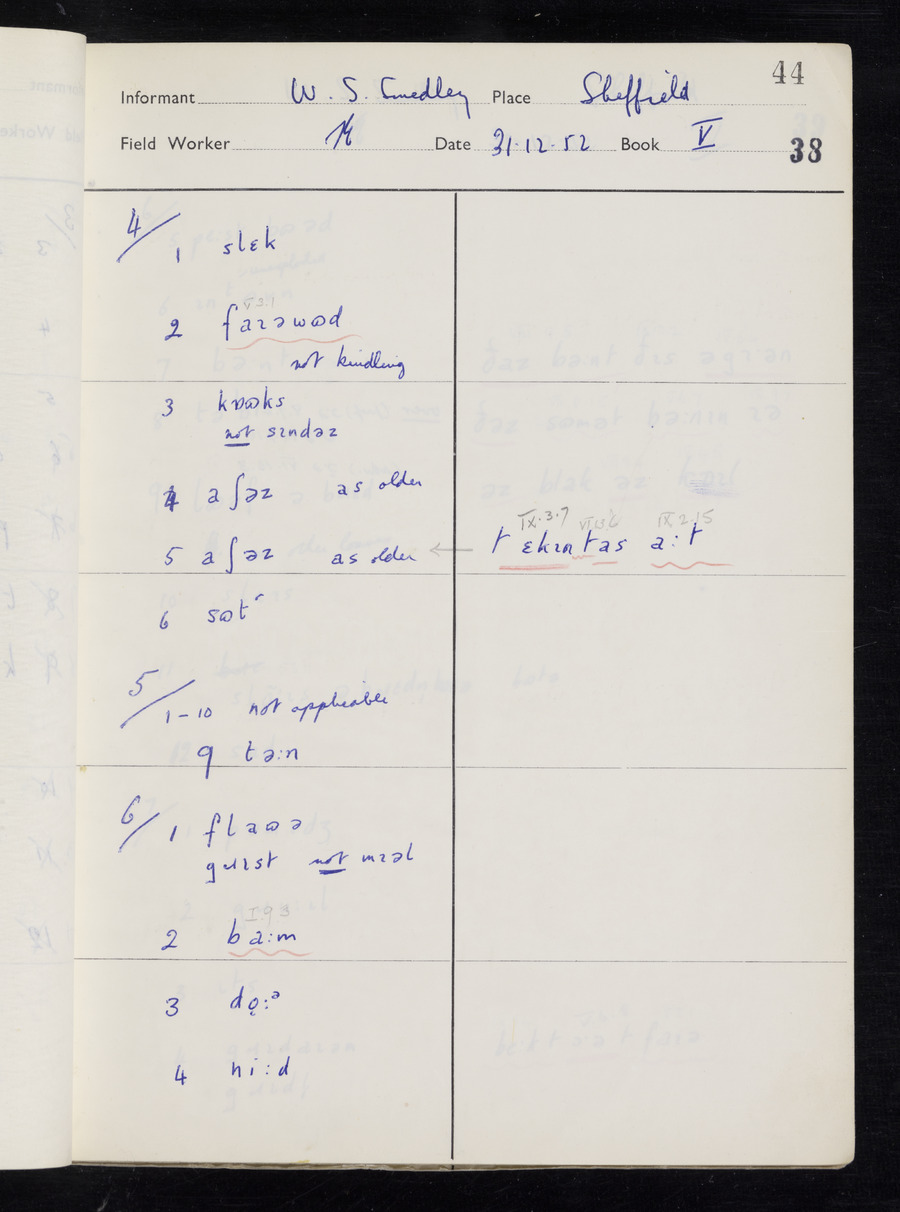 44
Informant W. S. Smedley Place Sheffield
Field Worker Date 31.12.52 Book V
38
4/ 1 slɛk
V 3.1
2 faɪəwɷd
not kindling
3 kɒɷks
not sɪndəz
4 aʃəz as older
IX.3.7 VI.13.6 IX.2.15
5 aʃəz as older ← t ɛkɪn tas a:t
6 sɷt
5/ 1–10 not applicable
9 tə:n
6/ 1 flaɷə
gɹɪst not mɪəl
I.9.3
2 ba:m
3 dǫ:ᵊ
4 ni:d